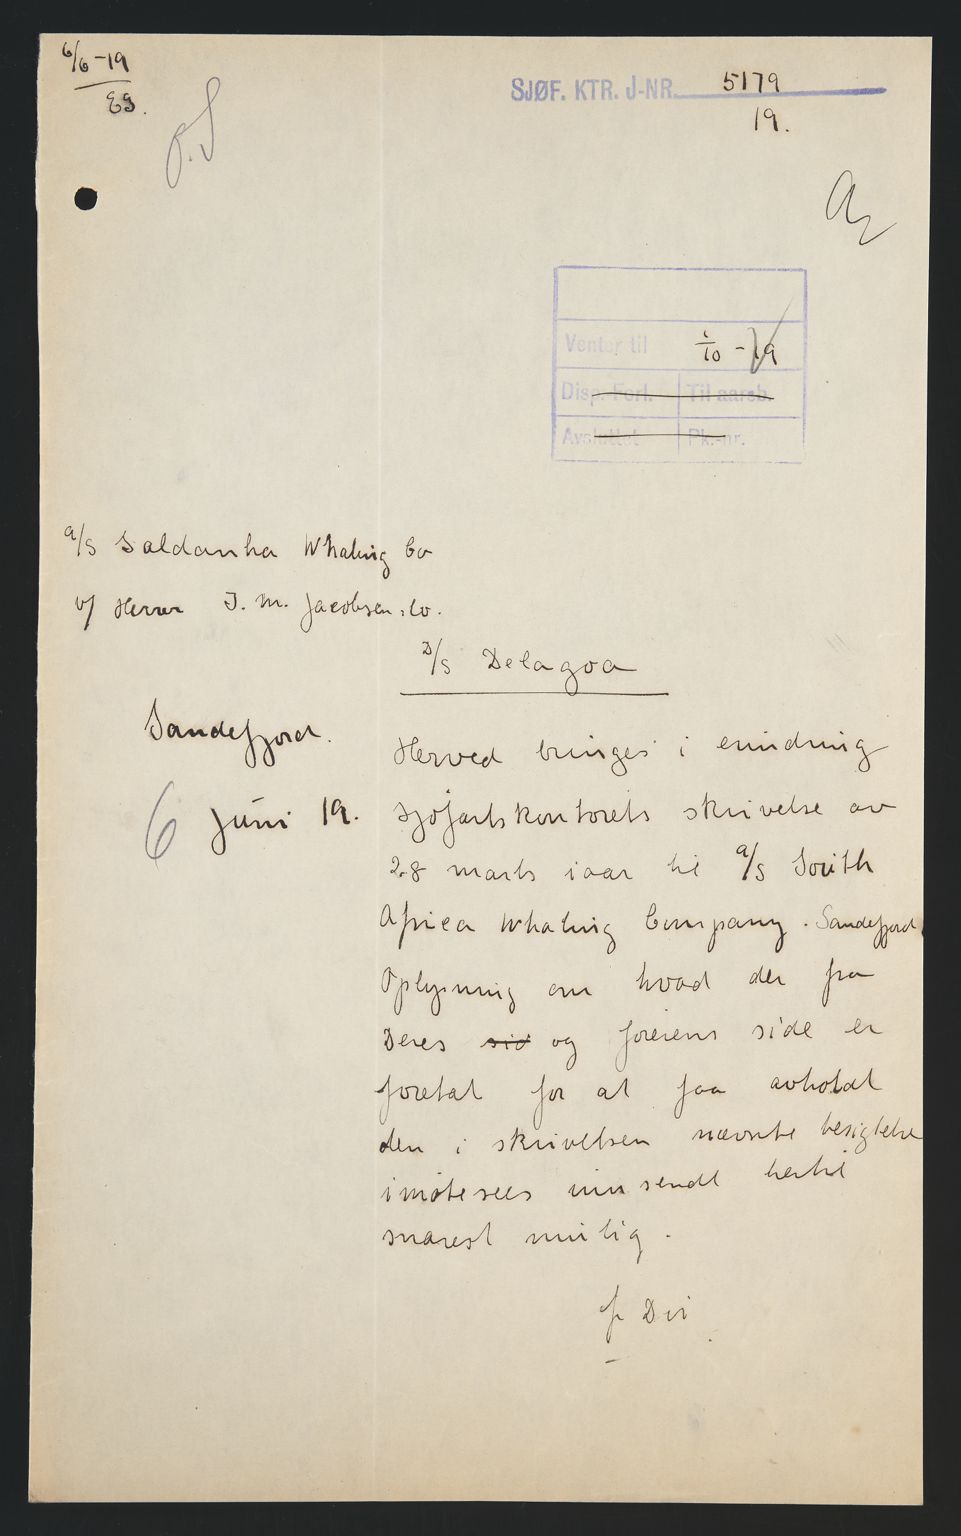 6/6-19
Eg.
SJØF. KTR. J-NR. 5179
19.
Venter til 1/10 - 19
Disp. Forl. Til aarsb.
Avsluttet Pk.-nr.
A/S Saldanha Whaling Co
v/ Herrer J. M. Jacobsen & Co.
D/S Delagoa
Sandefjord.
6 juni 19.
Herved bringes i erindring
sjøfartskontorets skrivelse av
28 marts iaar til A/S South
Africa Whaling Company. Sandefjord
Oplysning om hvad der fra
Deres sid og førerens side er
foretat for at faa avholdt
den i skrivelsen nævnte besigtelse
imøtesees innsendt hertil
snarest mulig.
f Dir